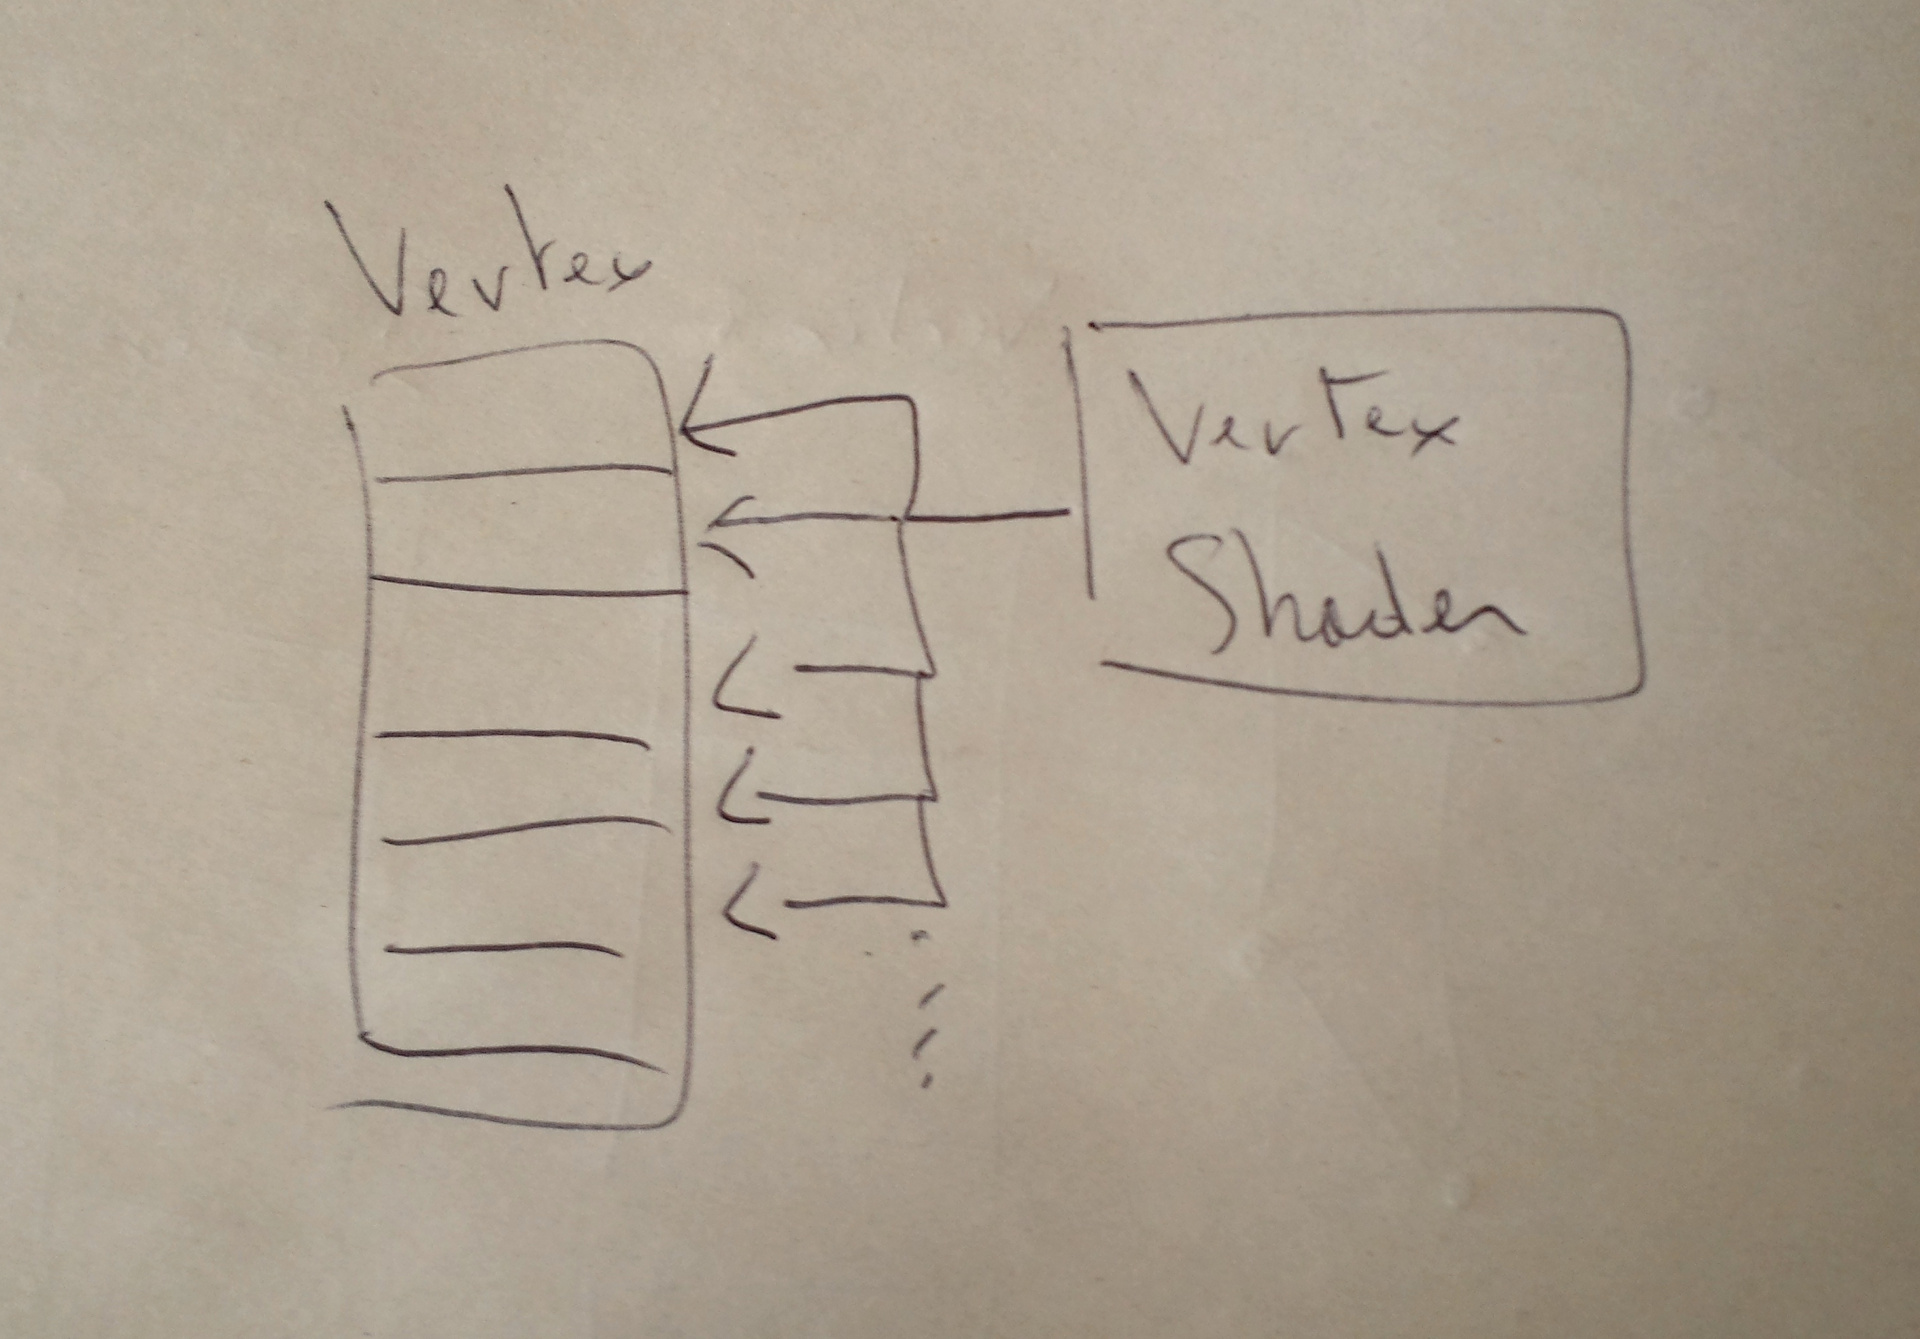 Vertex
Vertex
Shader